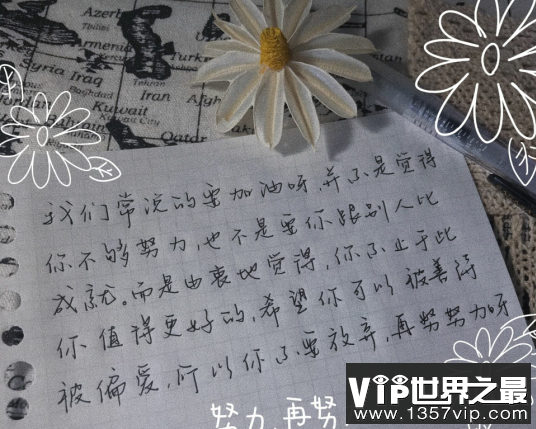 Azer
Armenia
Turk
Syria
Iraq
Tehran
Baghdad
Iran
Afgh
Jordan
Kuwait
Kuwait City
Qatar
我们常说的要加油呀,并不是觉得
你不够努力,也不是要你跟别人比
成就。而是由衷地觉得,你不止于此
你值得更好的,希望你可以被善待
被偏爱,所以你不要放弃,再努努力呀
努力,再努
VIP世界之最
www.1357vip.com